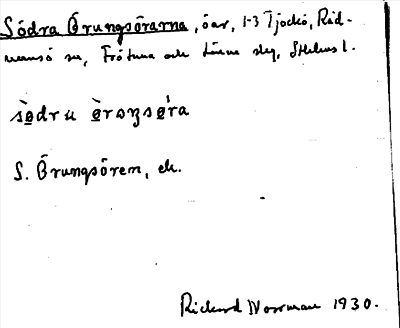 Södra Örungsörarna, öar, 1-3 Tjockö, Råd-
mansö sn, Frötuna och Länna skg, Sthlms l.
sødra ørɔŋsøra
S. Örungsören, ek.
Rickard Norrman 1930.